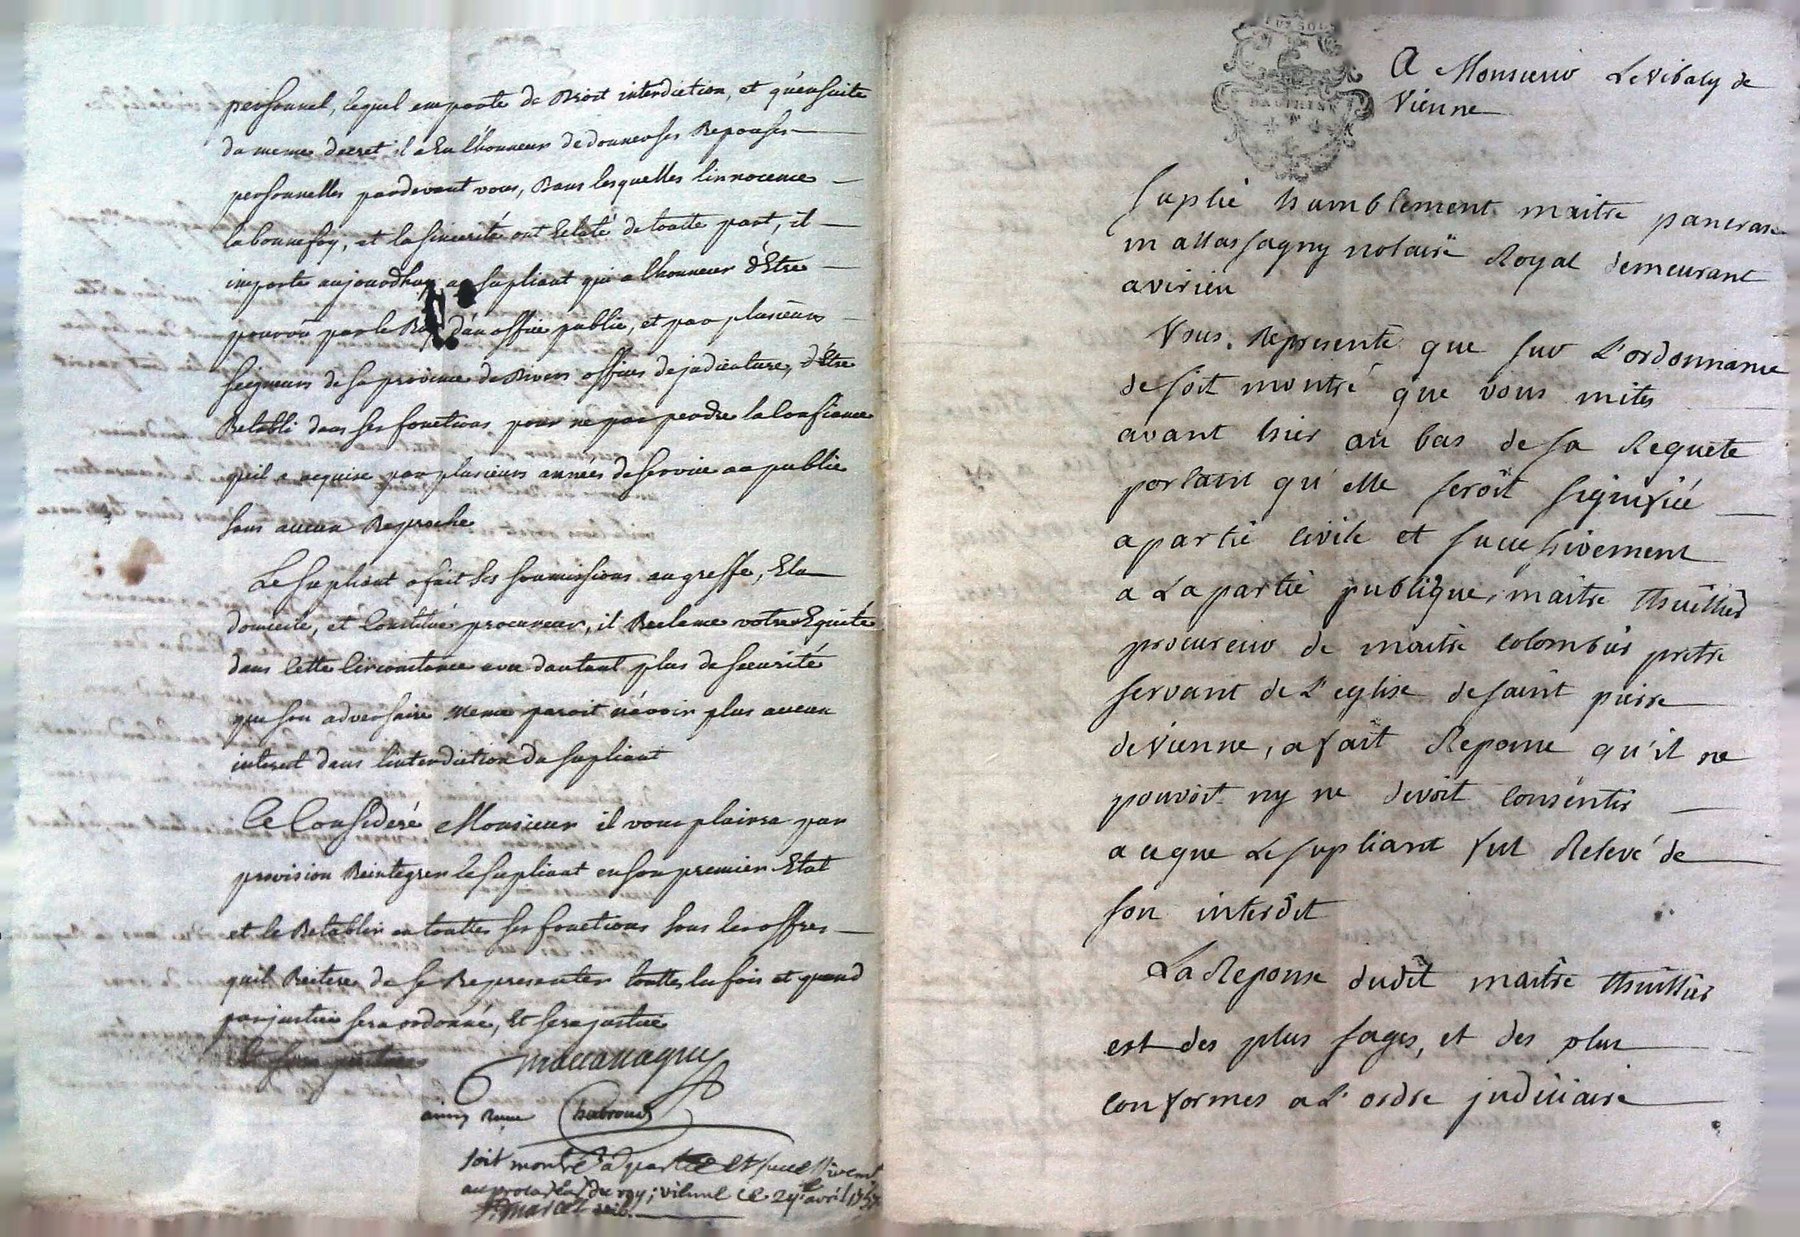 personnel, lequel emporte de Droit interdiction, et qu'ensuite
du meme decret il a Eu l'honneur de donner ses Reponses
personnelles pardevant vous, Dans lesquelles linnocence
la bonne foy, et la sincerité ont Eclaté de toutte part, il
importe aujourdhuy au supliant qui a l'honneur d'Etre
pourvu par le Roy d'un office public, et par plusieurs
seigneurs de la province de Divers offices de judicature, d'Etre
Retabli dans ses fonctions pour ne pas perdre la Confiance
quil a acquise par plusieurs années de service au public
sans aucun Reproche
Le supliant a fait ses soumissions au greffe, Elu
domicile, et Constitué procureur, il Reclame votre Equité
dans Cette Circonstance avec dautant plus de securité
que son adversaire meme paroit n'avoir plus aucun
interest dans linterdiction du supliant
Ce Consideré Monsieur il vous plaira par
provision Reintegrer le supliant en son premier Etat
et le Retablir en touttes ses fonctions sous les offres
quil Reitere de se Representer touttes les fois et quand
par justice sera ordonné, Et sera justice
Chabroud
soit montré a partie et successivemt
au procur du roy; vienne ce 29e avril 175
marcel
EUX SOLS
DAUPHINE
A Monsieur Le Vibaly de
Vienne
Suplie humblement maitre pancrase
mallassagny notaire Royal demeurant
a virieu
Vous Represente que sur L'ordonnance
de soit montré que vous mites
avant hier au bas de sa Requete
portant qu'elle seroit signifiée
a partie civile et successivement
a La partie publique, maitre thuillier
procureur de maitre colombier pretre
servant de L'eglise de saint pierre
de Vienne, a fait Reponse qu'il ne
pouvoit ny ne devoit consentir
a ce que Le supliant fut Relevé de
son interdit
La Reponse dudit maitre thuillier
est des plus sages, et des plus
conformes a L'ordre judiciaire